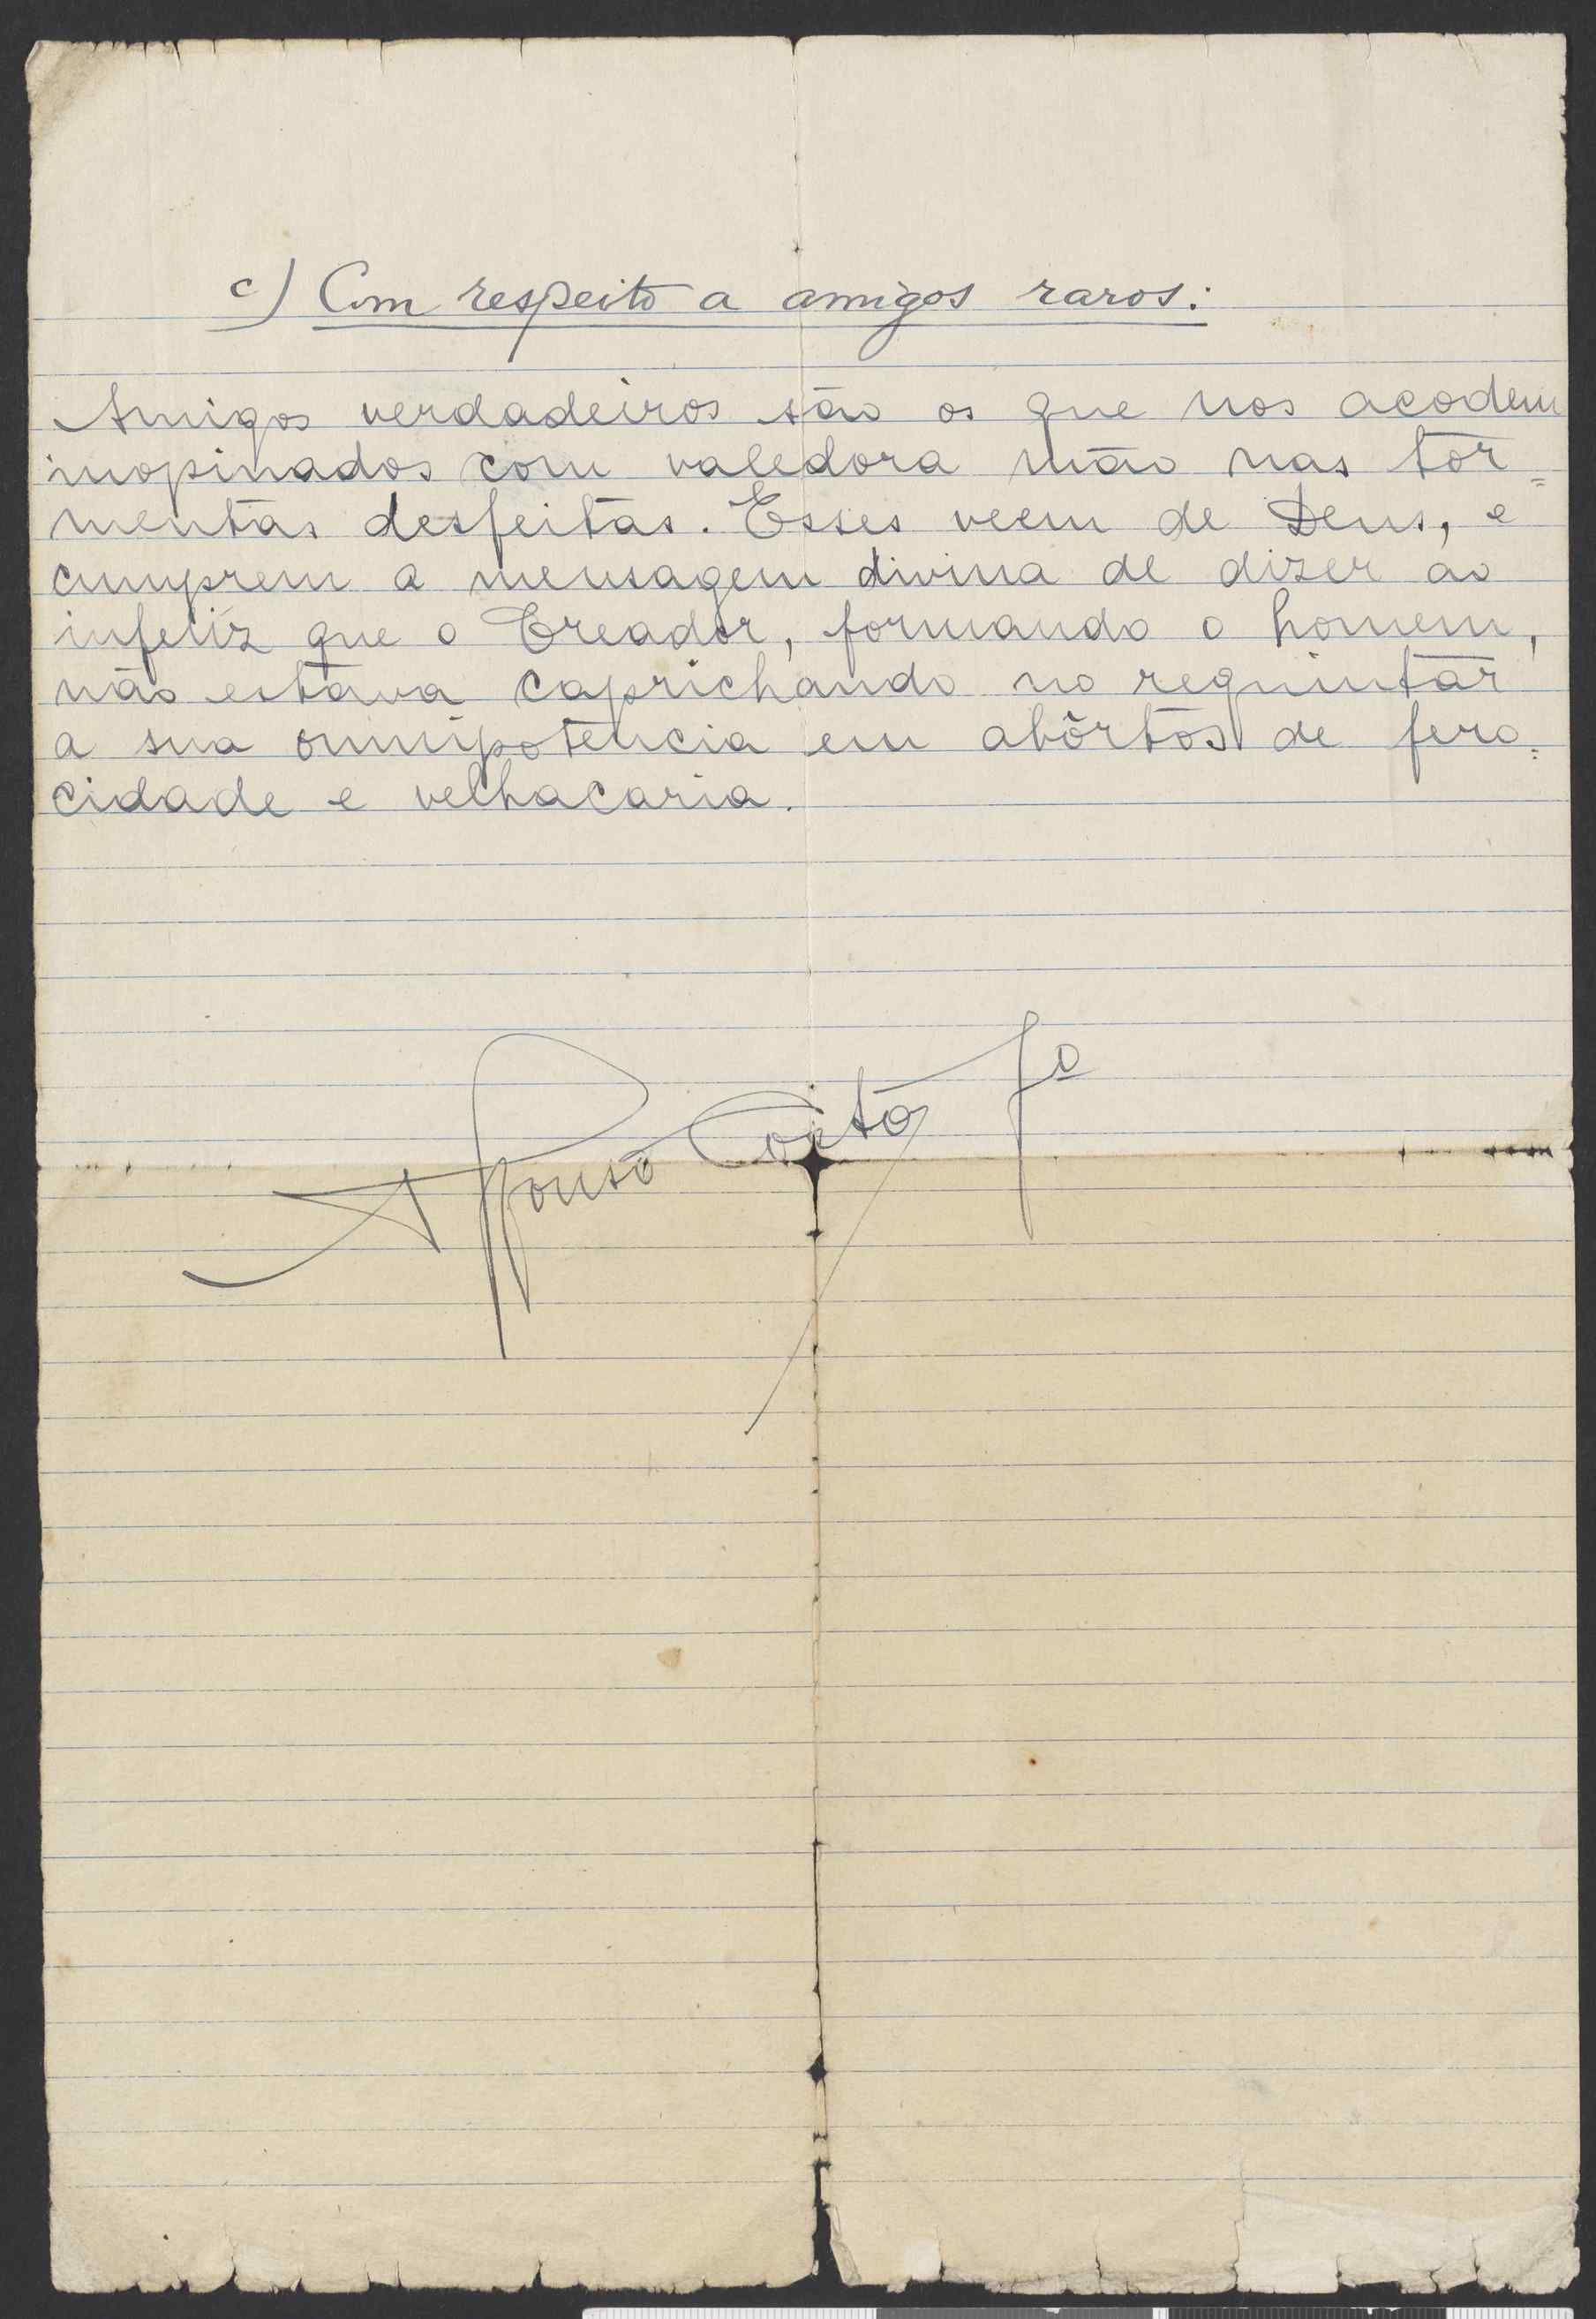 c) Com respeito a amigos raros:
Amigos verdadeiros são os que nos acodem
inopinados com valedora mão nas tor=
mentas desfeitas. Esses veem de Deus, e
cumprem a mensagem divina de dizer ao
infeliz que o Creador, formando o homem,
não estava caprichando no requintar
a sua omnipotencia em abôrtos de fero=
cidade e velhacaria.
Affonso Costa Jº